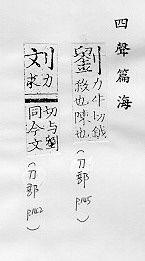 四聲篇海
劉力牛切鉞
殺也陳也(刀部 p.105)
刘力求切与劉
同今文(刀部 p.162)